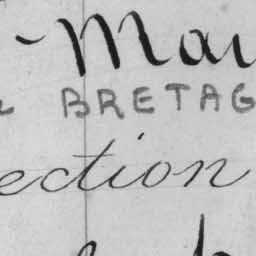 - Mai
BRETAG
ection